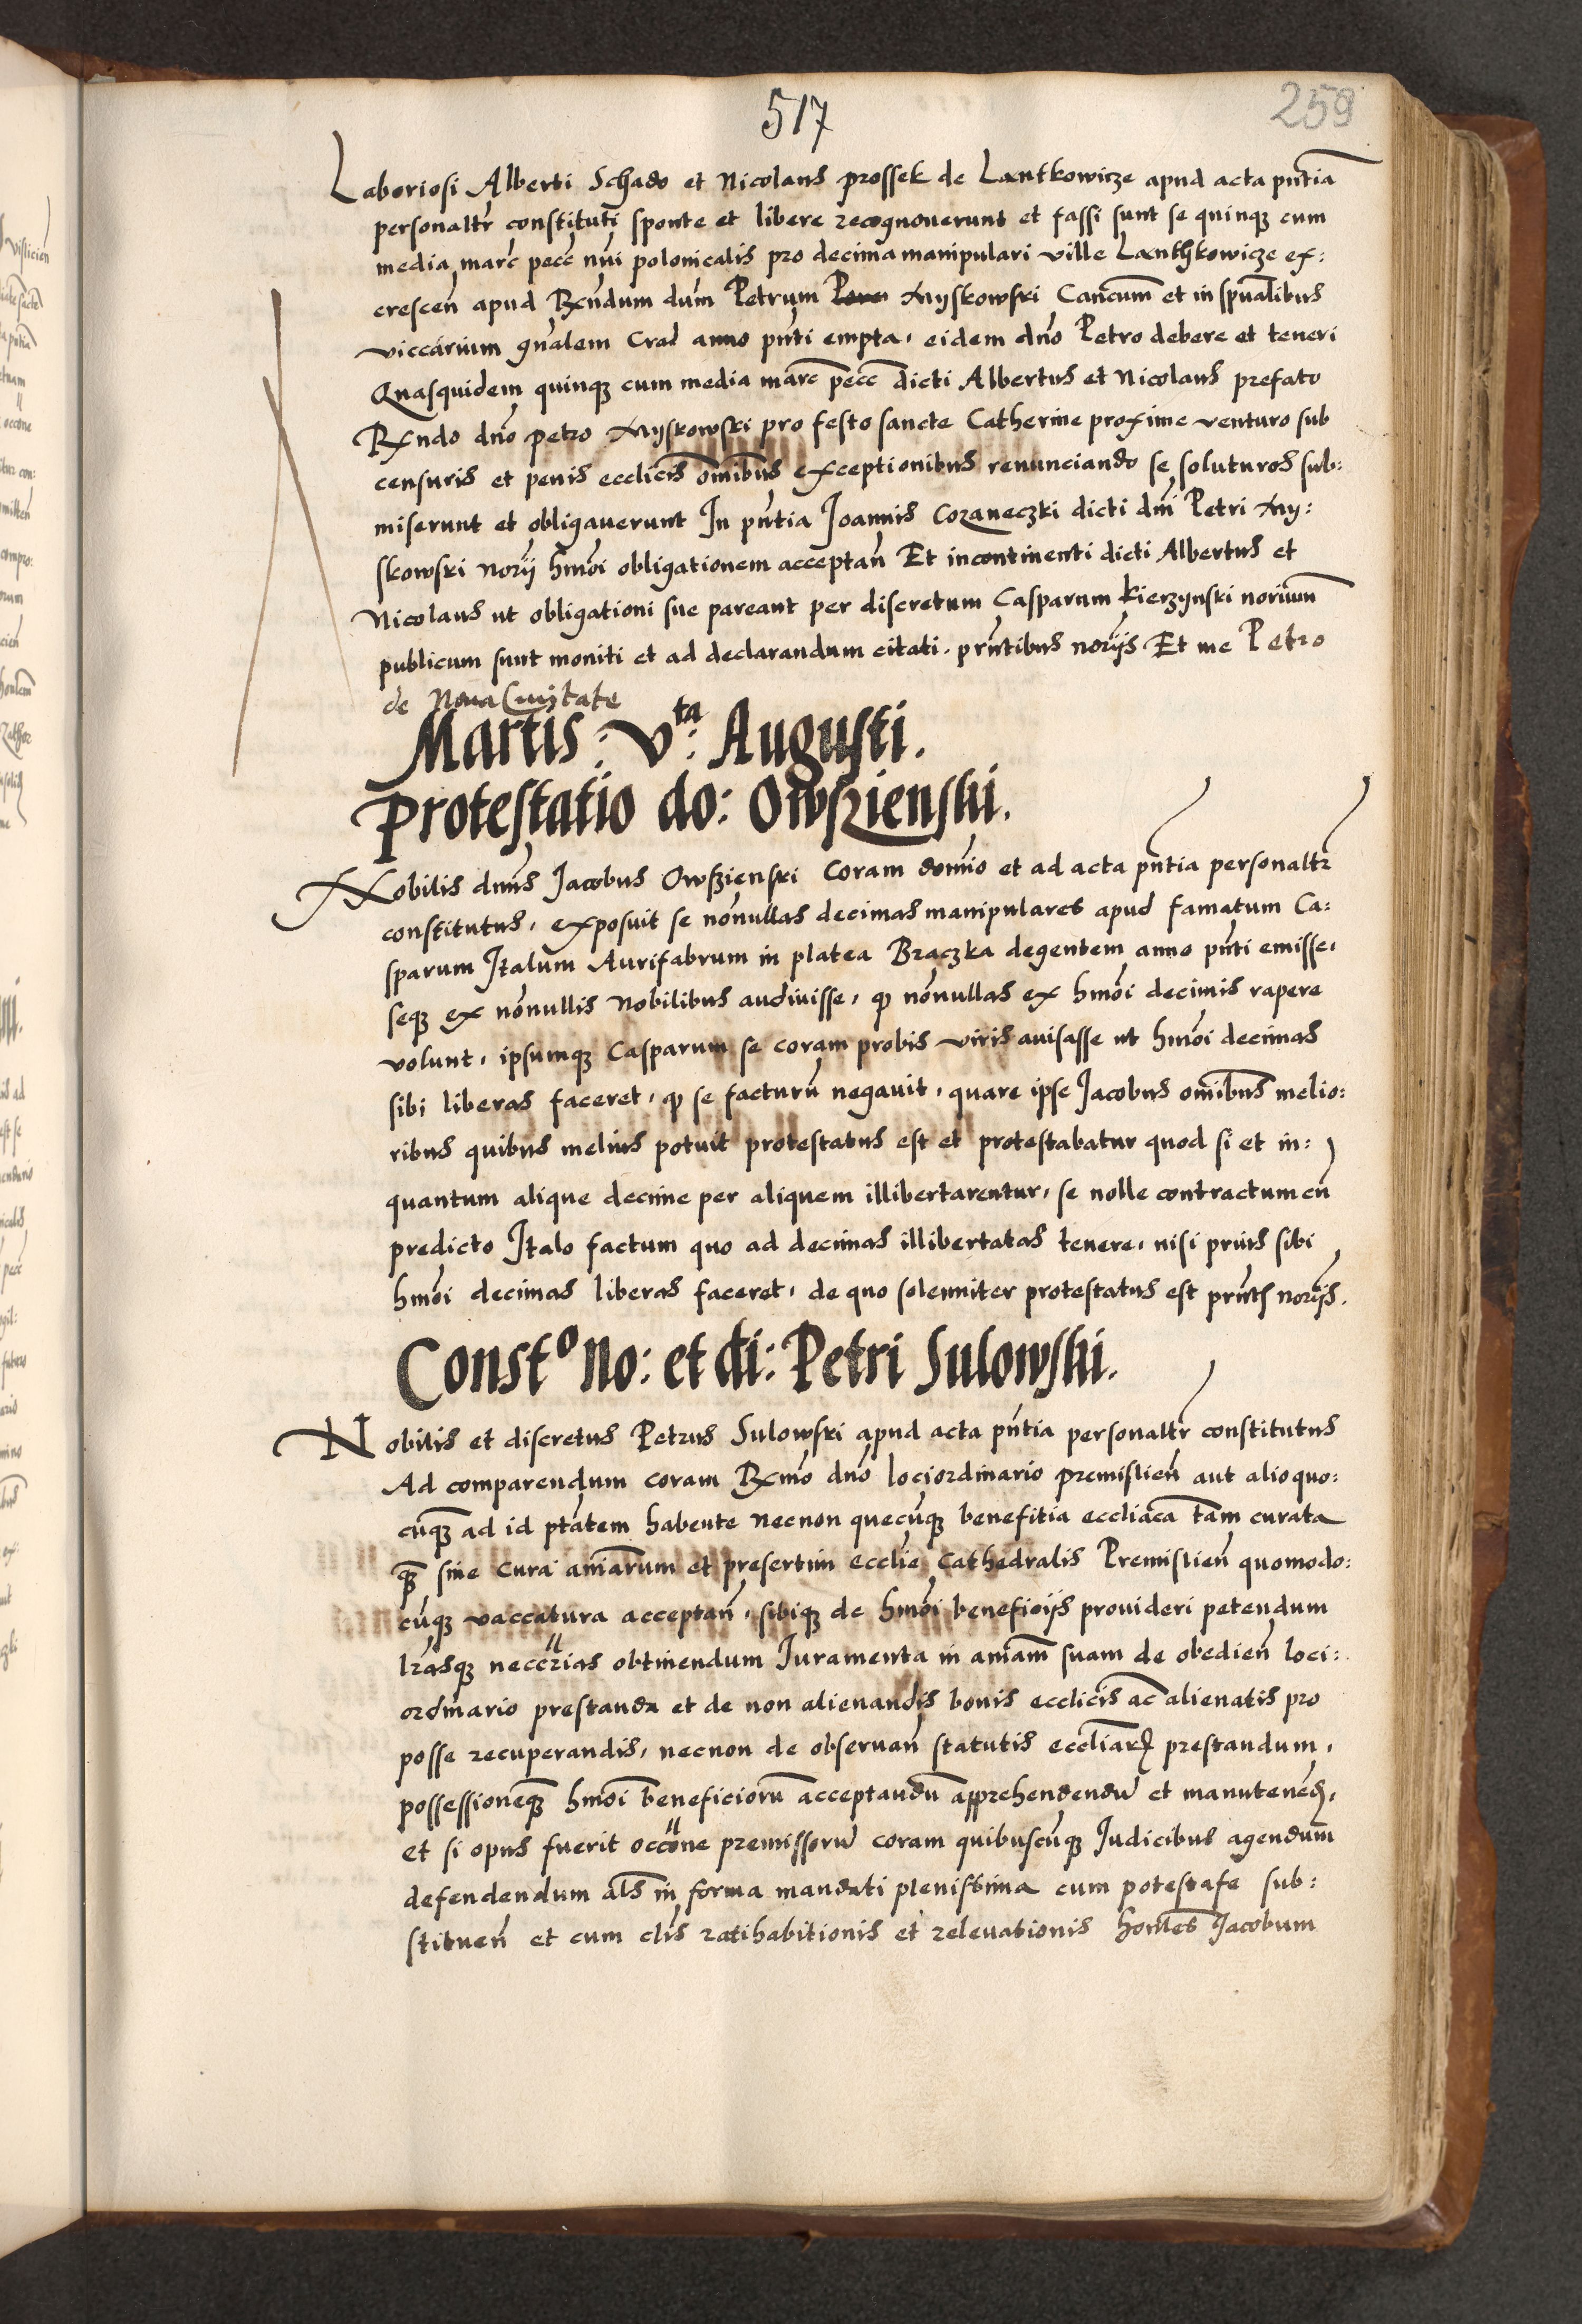 517
259
Laboriosi Alberti Schado et Nicolaus prossek de Lantkowicze apud acta pñtia
personaltr constituti sponte et libere recognoverunt et fassi sunt se quinqz cum
media marc pecc nũi polonicalis pro decima manipulari ville Lanthkowicze ex:
crescen apud Rñdum dum Petrum Myskowski Cancum et in spualibus
viccarium gñalem Crac anno pñti empta, eidem dño Petro debere et teneri
Quasquidem quinqz cum media marc pecc dicti Albertus et Nicolaus prefato
Rndo dño petro Myskowski pro festo sancte Catherine proxime venturo sub
censuris et penis ecclicis omibus exceptionibus renunciando se soluturos sub:
miserunt et obligauerunt In pñtia Joannis Cozaneczki dicti dni Petri My:
skowski norij hmoi obligationem acceptañ Et incontinenti dicti Albertus et
Nicolaus ut obligationi sue pareant per discretum Casparum kierzynski norium
publicum sunt moniti et ad declarandum citati. prntibus norijs Et me Petro
de Noua Ciuitate
Martis: v:ta Augusti.
Protestatio do: Owszienski.
Nobilis dnus Jacobus Owszienski Coram domio et ad acta pñtia personaltr
constitutus, exposuit se nonullas decimas manipulares apud famatum Ca:
sparum Italum Aurifabrum in platea Braczka degentem anno pñti emisse,
seqz ex nonullis Nobilibus audiuisse, qz nonullas ex hmoi decimis rapere
volunt, ipsumqz Casparum se coram probis viris auisasse ut hmoi decimas
sibi liberas faceret, qz se facturũ negauit, quare ipse Jacobus omibus melio:
ribus quibus melius potuit protestatus est et protestabatur quod si et in:
quantum alique decime per aliquem illibertarentur, se nolle contractum cũ
predicto Italo factum quo ad decimas illibertatas tenere, nisi prius sibi
hmoi decimas liberas faceret, de quo solenniter protestatus est prñts norijs.
Constᵒ No: et di: Petri Sulowski.
Nobilis et discretus Petrus Sulowski apud acta pñtia personaltr constitutus
Ad comparendum coram Rmo dño lociordinario premislieñ aut alioquo:
cũqz ad id ptatem habente necnon quecũqz benefitia eccliaca tam curata
qz sine cura aniarum et presertim ecclie Cathedralis Premislieñ quomodo:
cũqz vaccatura acceptañ, sibiqz de hmoi beneficijs prouideri petendum
lrasqz neccrias obtinendum Juramenta in aniam suam de obedieñ loci:
ordinario prestanda et de non alienandis bonis ecclicis ac alienatis pro
posse recuperandis, necnon de obseruañ statutis eccliarz prestandum,
possessioneqz hmoi beneficiorũ acceptandũ apprehendendũ et manutened,
et si opus fuerit occone premissorũ coram quibuscũqz Judicibus agendum
defendendum als in forma mandati plenissima cum potestate sub:
stitueñ et cum clis ratihabitionis et releuationis honles Jacobum